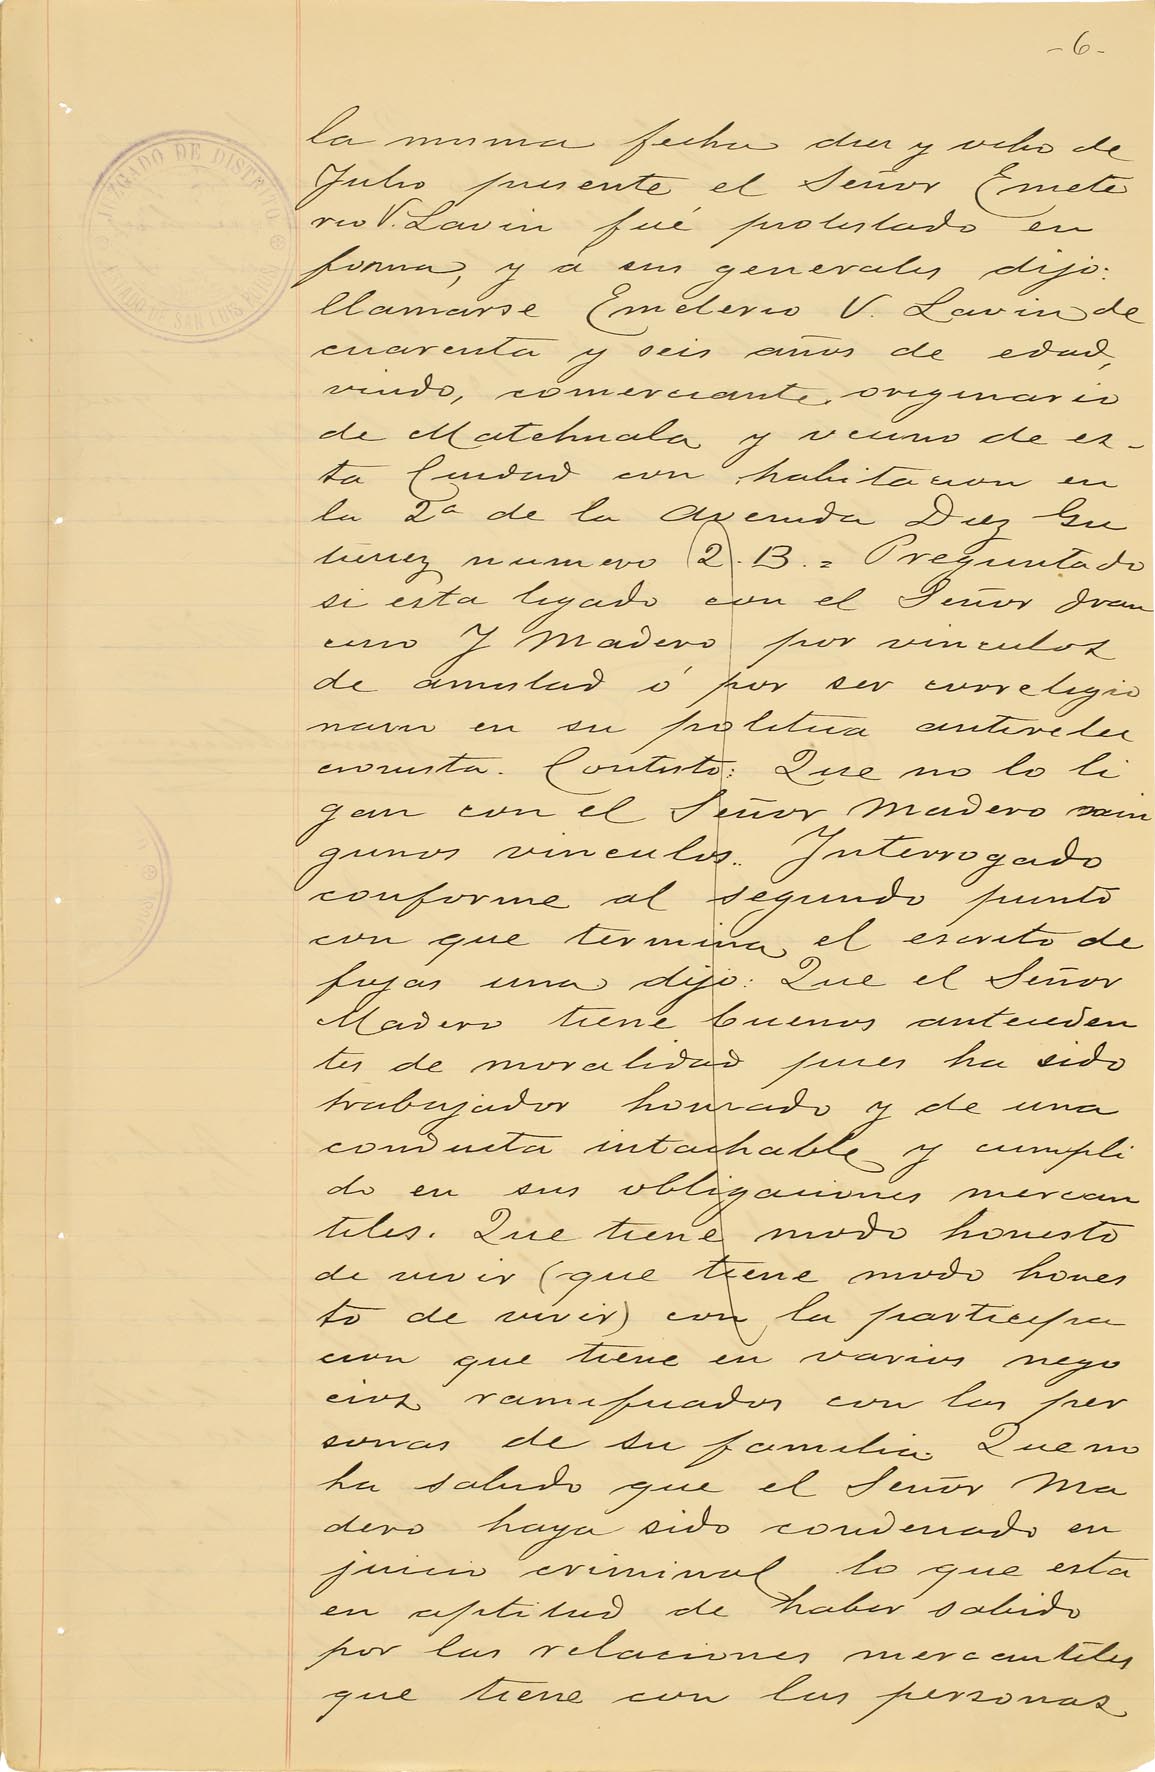 -6-
la misma fecha diez y ocho de
Julio presente el Señor Emete
rio V. Lavin fué protestado en
forma, y á sus generales dijo:
llamarse Emeterio V. Lavin de
cuarenta y seis años de edad,
viudo, comerciante, originario
de Matehuala y vecino de es-
ta Ciudad con habitacion en
la 2a de la Avenida Diez Gu
tierrez numero 2.B. = Preguntado
si esta ligado con el Señor Fran
cisco Y Madero por vinculos
de amistad ó por ser correligio
nario en su politica antirelec
cionista. Contestó: Que no lo li
gan con el Señor Madero nin
gunos vinculos. Interrogado
conforme al segundo punto
con que termina el escrito de
fojas una dijo: Que el Señor
Madero tiene buenos anteceden
tes de moralidad pues ha sido
trabajador honrado y de una
conducta intachable y cumpli
do en sus obligaciones mercan
tiles. Que tiene modo honesto
de vivir (que tiene modo hones
to de vivir) con la participa
cion que tiene en varios nego
cios ramificados con las per
sonas de su familia. Que no
ha sabido que el Señor Ma
dero haya sido condenado en
juicio criminal lo que esta
en aptitud de haber sabido
por las relaciones mercantiles
que tiene con las personas
JUZGADO DE DISTRITO
ESTADO DE SAN LUIS POTOSI